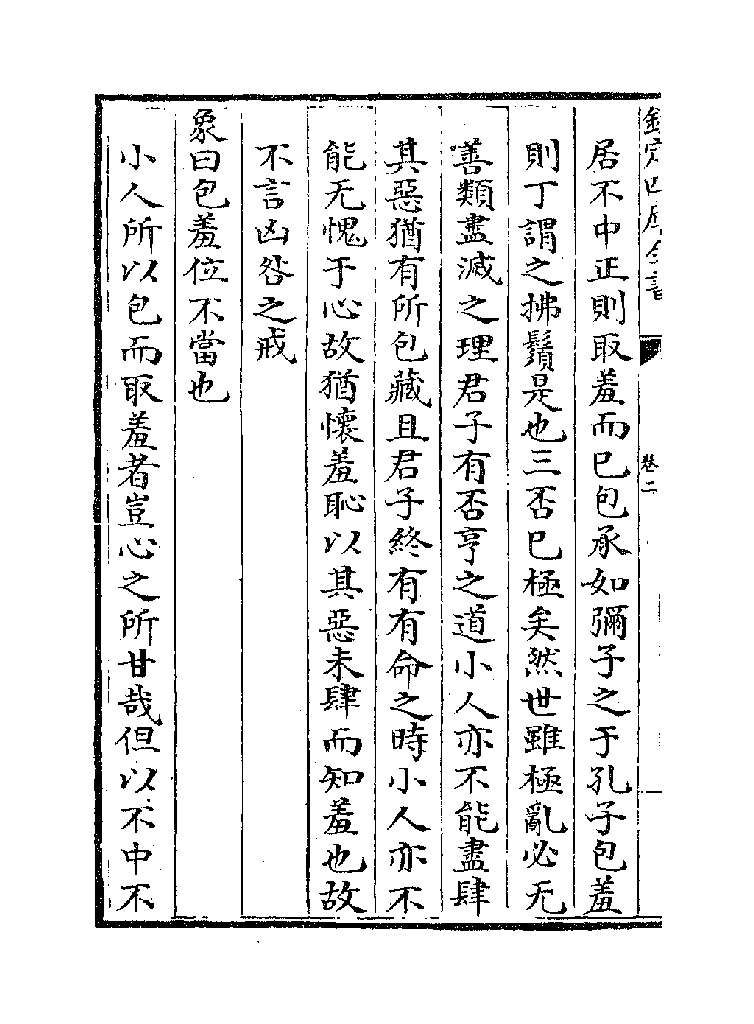 欽定四庫全書
卷二
居不中正則取羞而已包承如彌子之于孔子包羞
則丁謂之拂鬚是也三否已極矣然世雖極亂必无
善類盡滅之理君子有否亨之道小人亦不能盡肆
其惡猶有所包藏且君子終有有命之時小人亦不
能无愧于心故猶懷羞恥以其惡未肆而知羞也故
不言凶咎之戒
象曰包羞位不當也
小人所以包而取羞者豈心之所甘哉但以不中不